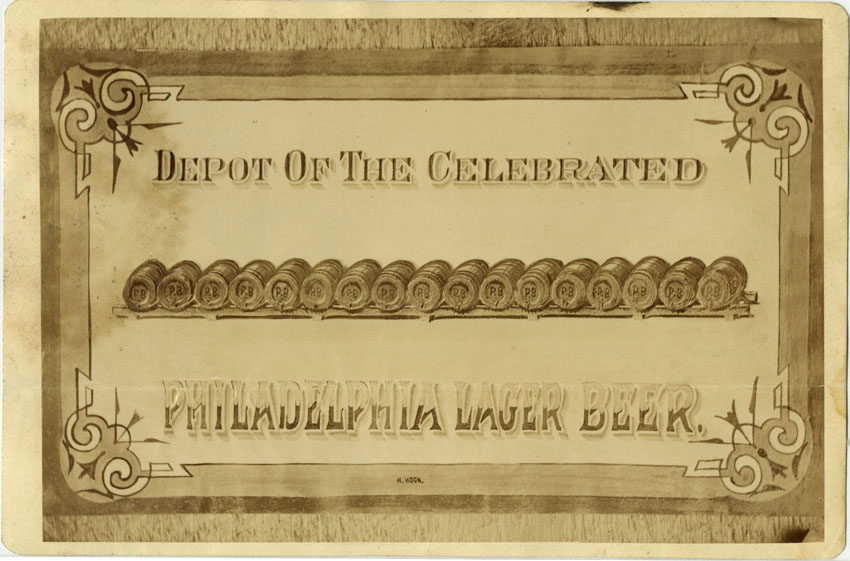 DEPOT OF THE CELEBRATED
P.B P.B P.B P.B P.B P.B P.B P.B P.B P.B P.B P.B P.B P.B P.B P.B P.B
PHILADELPHIA LAGER BEER.